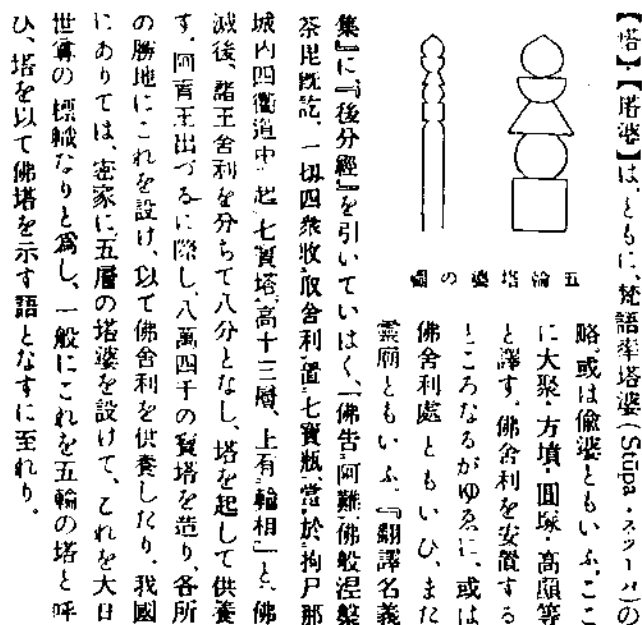 【塔】・【塔婆】は、ともに、梵語率塔婆(Stūpa・スツーパ)の
略、或は偸婆ともいふ。ここ
に大聚・方墳・圓塚・高顯等
と譯す。佛舍利を安置する
ところなるがゆゑに、或は
佛舍利處ともいひ、また
靈廟ともいふ。『翻譯名義
五輪塔婆の圖
集』に『後分經』を引いていはく、「佛告阿難、佛般涅槃
荼毘既訖、一切四衆收取舍利、置七寶瓶、當於拘尸那
城内四衢道中、起七寶塔、高十三層、上有輪相」と、佛
滅後、諸王舍利を分ちて八分となし、塔を起して供養
す。阿育王出づるに際し、八萬四千の寶塔を造り、各所
の勝地にこれを設け、以て佛舍利を供養したり。我國
にありては、密家に五層の塔婆を設けて、これを大日
世尊の標幟なりと爲し、一般にこれを五輪の塔と呼
ひ、塔を以て佛塔を示す語となすに至れり。